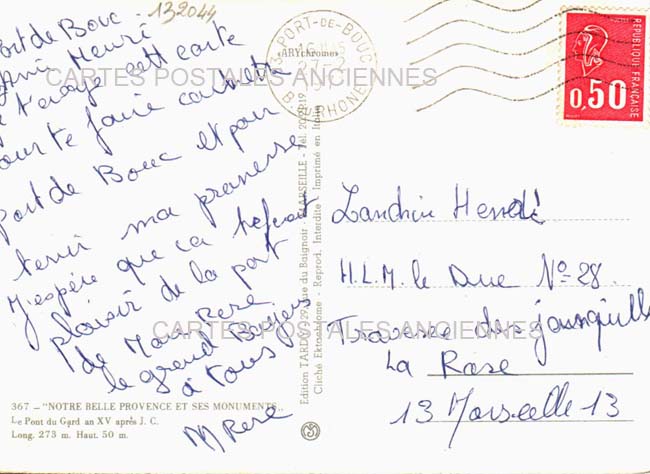 132044
Port de Bouc
Ami Henri
Je t'envoie cett carte
pour te faire connaitre
Port de Bouc et pour
tenir ma promesse
J'espère que ca te feras
plaisir de la part
de Mour Rere
le grand Boyers
à tous
M Rere
CARTES POSTALES ANCIENNES
CARTES POSTALES ANCIENNES
367 — "NOTRE BELLE PROVENCE ET SES MONUMENTS"
Le Pont du Gard an XV après J. C.
Long. 273 m. Haut. 50 m.
"ARYschromes"
Edition TARDY, 29, rue du Baignoir - MARSEILLE - Tél. 20.
Cliché Ektachrome - Reprod. Interdite - Imprimé en Italie
13 PORT-DE-BOUC
16 H 45
27-2
197
B. DU RHONE
REPUBLIQUE FRANÇAISE
0,50
Landrin Henri
H.L.M. le Duc N° 28
Traverse des jonquille
La Rose
13 Marseille 13